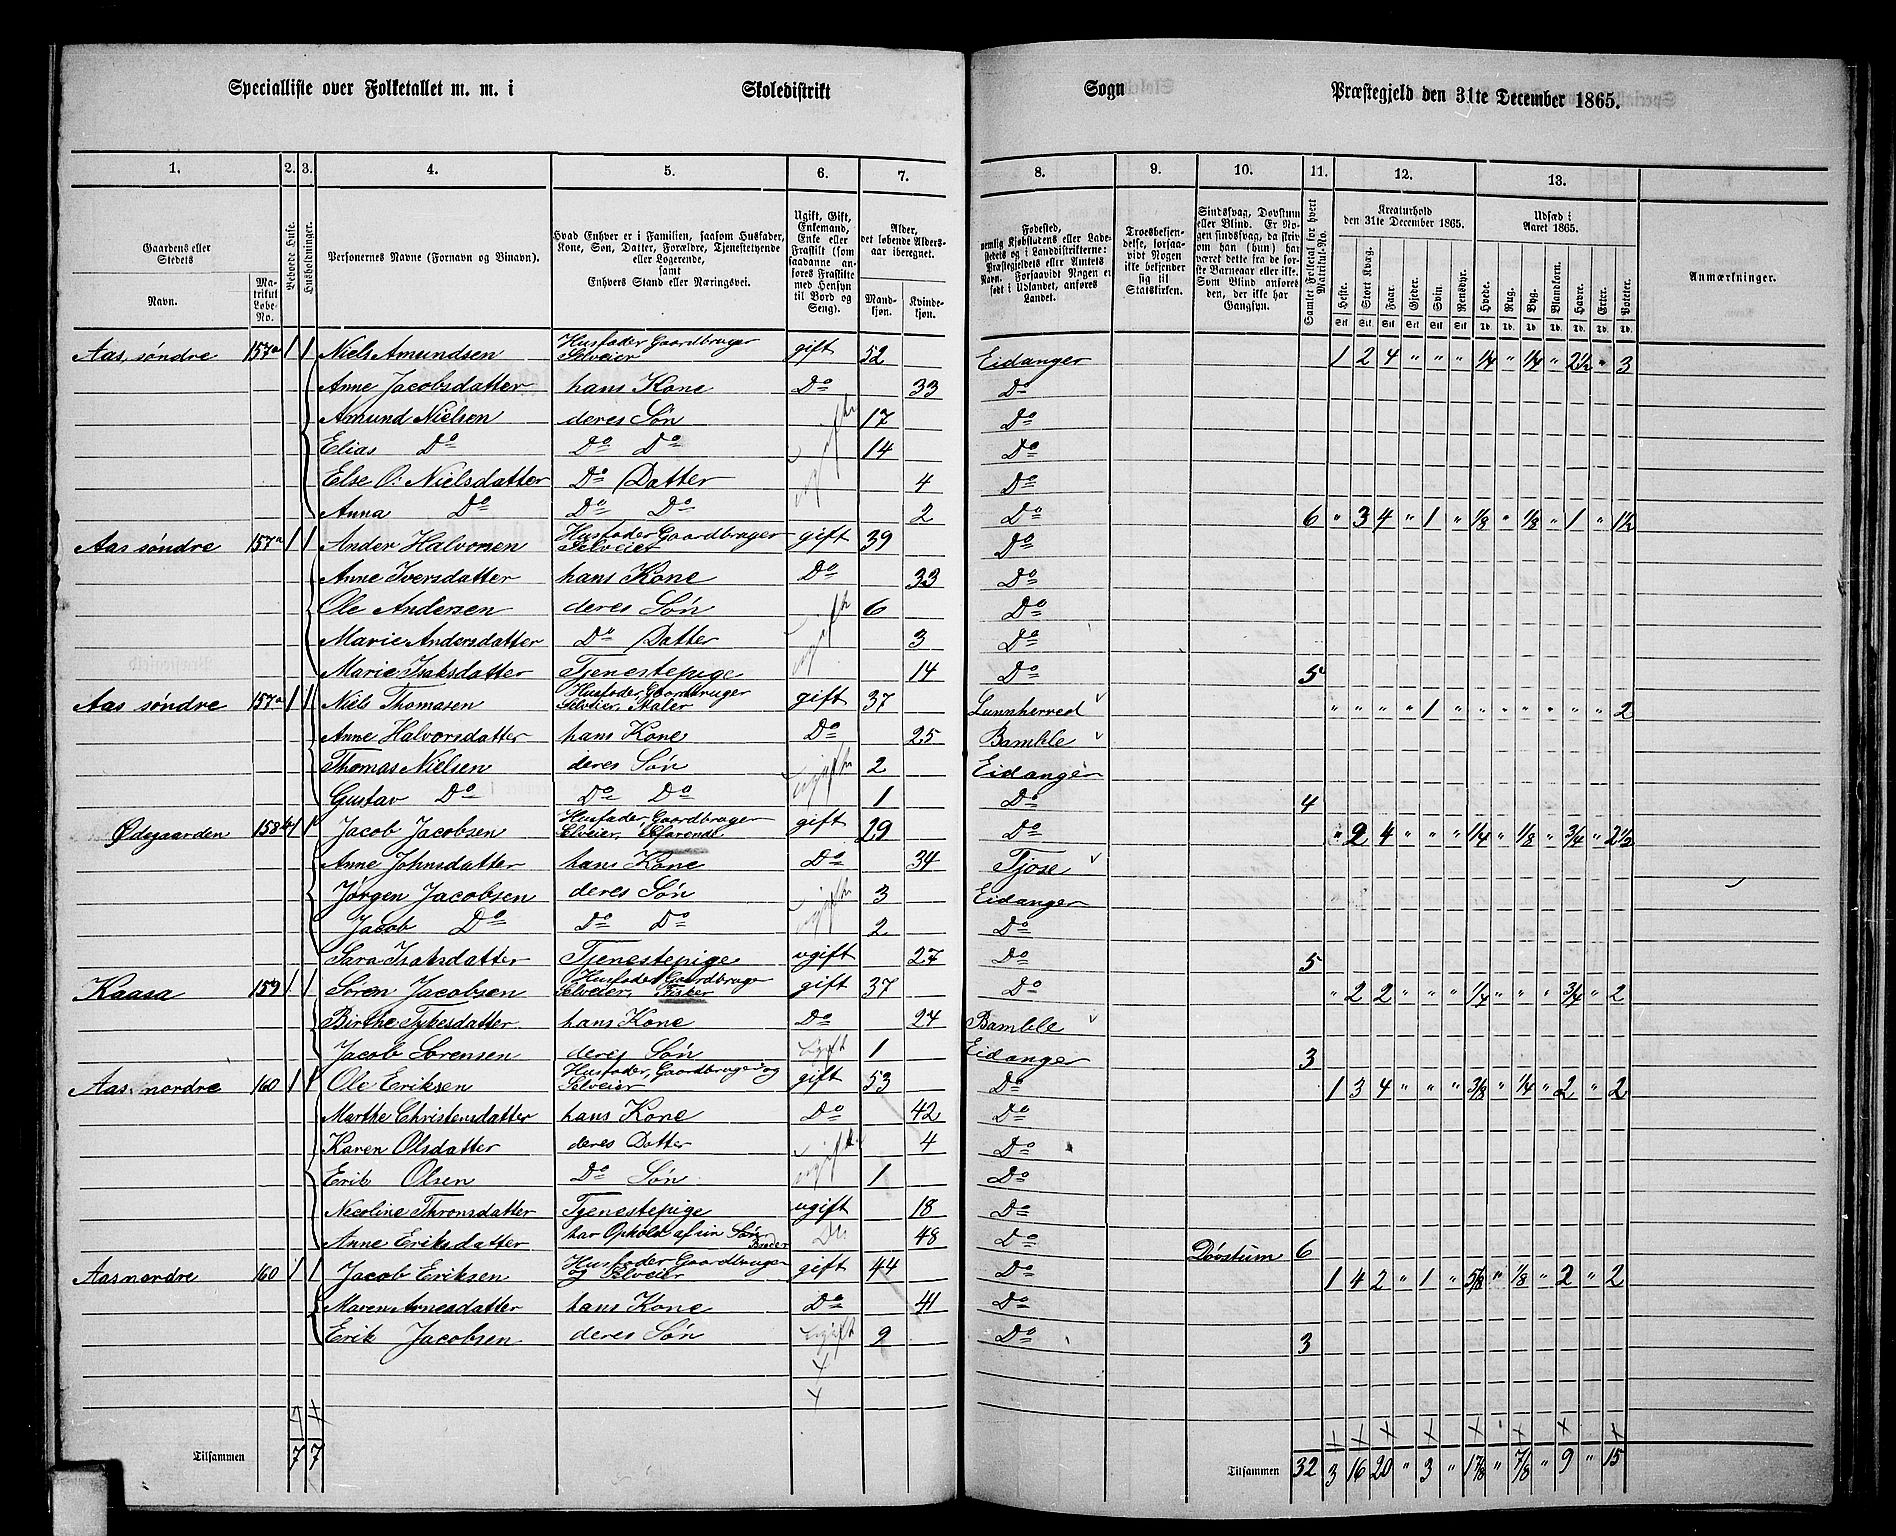 Specialliste over Folketallet m. m. i Skoledistrikt Sogn Præstegjeld den 31te December 1865.
1. 2. 3. 4. 5. 6. 7. 8. 9. 10. 11. 12. 13.
Gaardens eller Stedets
Navn.
Matrikul Løbe-No.
Beboede Huse.
Husholdninger.
Personernes Navne (Fornavn og Binavn).
Hvad Enhver er i Familien, saasom Husfader, Kone, Søn, Datter, Forældre, Tjenestetyende eller Logerende, samt Enhvers Stand eller Næringsvei.
Ugift, Gift, Enkemand, Enke eller Fraskilt (som saadanne anføres Fraskilte med Hensyn til Bord og Seng).
Alder, det løbende Aldersaar iberegnet.
Mandkjøn. Kvindekjøn.
Fødested, nemlig Kjøbstadens eller Ladestedets og i Landdistrikterne: Præstegjeldets eller Amtets Navn. Forsaavidt Nogen er født i Udlandet, anføres Landet.
Troesbekjendelse, forsaavidt Nogen ikke bekjender sig til Statskirken.
Sindssvag, Døvstum eller Blind. Er Nogen sindssvag, da skriv om han (hun) har været dette fra de første Barneaar eller ikke. Som Blind anføres den, der ikke har Gangsyn.
Samlet Folketal for hvert Matrikul-No.
Kreaturhold den 31te December 1865.
Udsæd i Aaret 1865.
Heste. Stort Kvæg. Faar. Gjeder. Svin. Rensdyr. Hvede. Rug. Byg. Blandkorn. Havre. Erter. Poteter.
Anmærkninger.
Aas, søndre 157a 1 1 Niels Amundsen Husfader, Gaardbruger Selveier gift 52 Eidanger 1 2 4 " " " 1/4 " 1/4 " 2 1/2 " 3
Anne Jacobsdatter hans Kone Do 33 Do
Amund Nielsen deres Søn ugift 17 Do
Elias Do Do Do 14 Do
Else O: Nielsdatter Do Datter 4 Do
Anna Do Do Do 2 Do 6 " 3 4 " 1 " 1/8 " 1/8 " 1 " 1 1/2
Aas søndre 157a 1 1 Ander Halvorsen Husfader, Gaardbruger Selveier gift 39 Do
Anne Iversdatter hans Kone Do 33 Do
Ole Andersen deres Søn ugift 6 Do
Marie Andersdatter Do Datter 3 Do
Marie Isaksdatter Tjenestepige 14 Do 5
Aas søndre 157a 1 1 Niels Thomasen Husfader, Gaardbruger Selveier, Maler gift 37 Lunnherred " " " " 1 " " " " " " " 2
Anne Halvorsdatter hans Kone Do 25 Bamble
Thomas Nielsen deres Søn ugift 2 Eidanger
Gustav Do Do Do 1 Do 4
Ødegaarden 158b 1 1 Jacob Jacobsen Husfader, Gaardbruger Selveier, Søfarende gift 29 Do " 2 4 " " " 1/4 " 1/8 " 3/4 " 2 1/2
Anne Johnsdatter hans Kone Do 34 Tjose
Jørgen Jacobsen deres Søn ugift 3 Eidanger
Jacob Do Do Do 2 Do
Sara Isaksdatter Tjenestepige ugift 27 Do 5
Kaasa 159 1 1 Søren Jacobsen Husfader, Gaardbruge Selveier, Fisker gift 37 Do " 2 2 " " " 1/4 " " " 3/4 " 2
Birthe Tykesdatter hans Kone Do 24 Bamble
Jacob Sørensen deres Søn ugift 1 Eidanger 3
Aas nordre 160 1 1 Ole Eriksen Husfader, Gaardbruger og Selveier gift 53 Do 1 3 4 " " " 3/8 " 1/4 " 2 " 2
Marthe Christensdatter hans Kone Do 42 Do
Karen Olsdatter deres Datter ugift 4 Do
Erik Olsen Do Søn 1 Do
Nicoline Thronsdatter Tjenestepige ugift 18 Do
Anne Eriksdatter har Ophold af sin Broder Do 48 Do Døvstum 6
Aas nordre 160 1 1 Jacob Eriksen Husfader, Gaardbruger og Selveier gift 44 Do 1 4 2 " 1 " 5/8 " 1/8 " 2 " 2
Maren Arnesdatter hans Kone Do 41 Do
Erik Jacobsen deres Søn ugift 9 Do 3
Tilsammen 7 7 Tilsammen 32 3 16 20 " 3 " 1 7/8 " 7/8 " 9 " 15